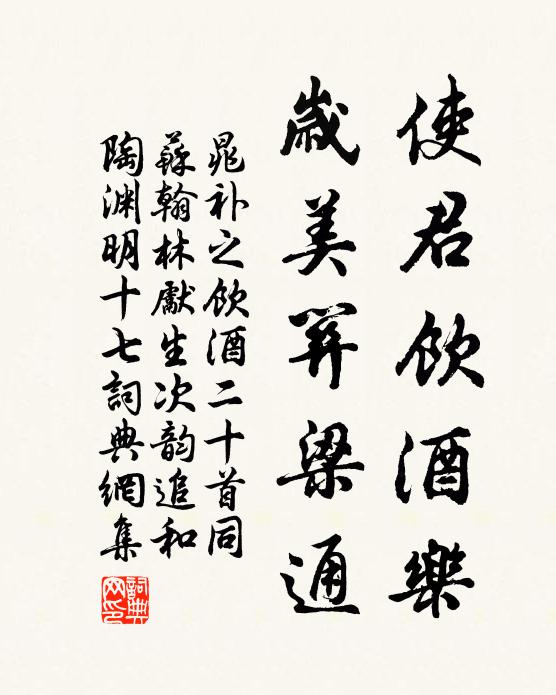 使君飲酒樂
歲美關梁通
晁补之飲酒二十首同
蘇翰林獻生次韵追和
陶渊明十七詞典網集
詞典网印